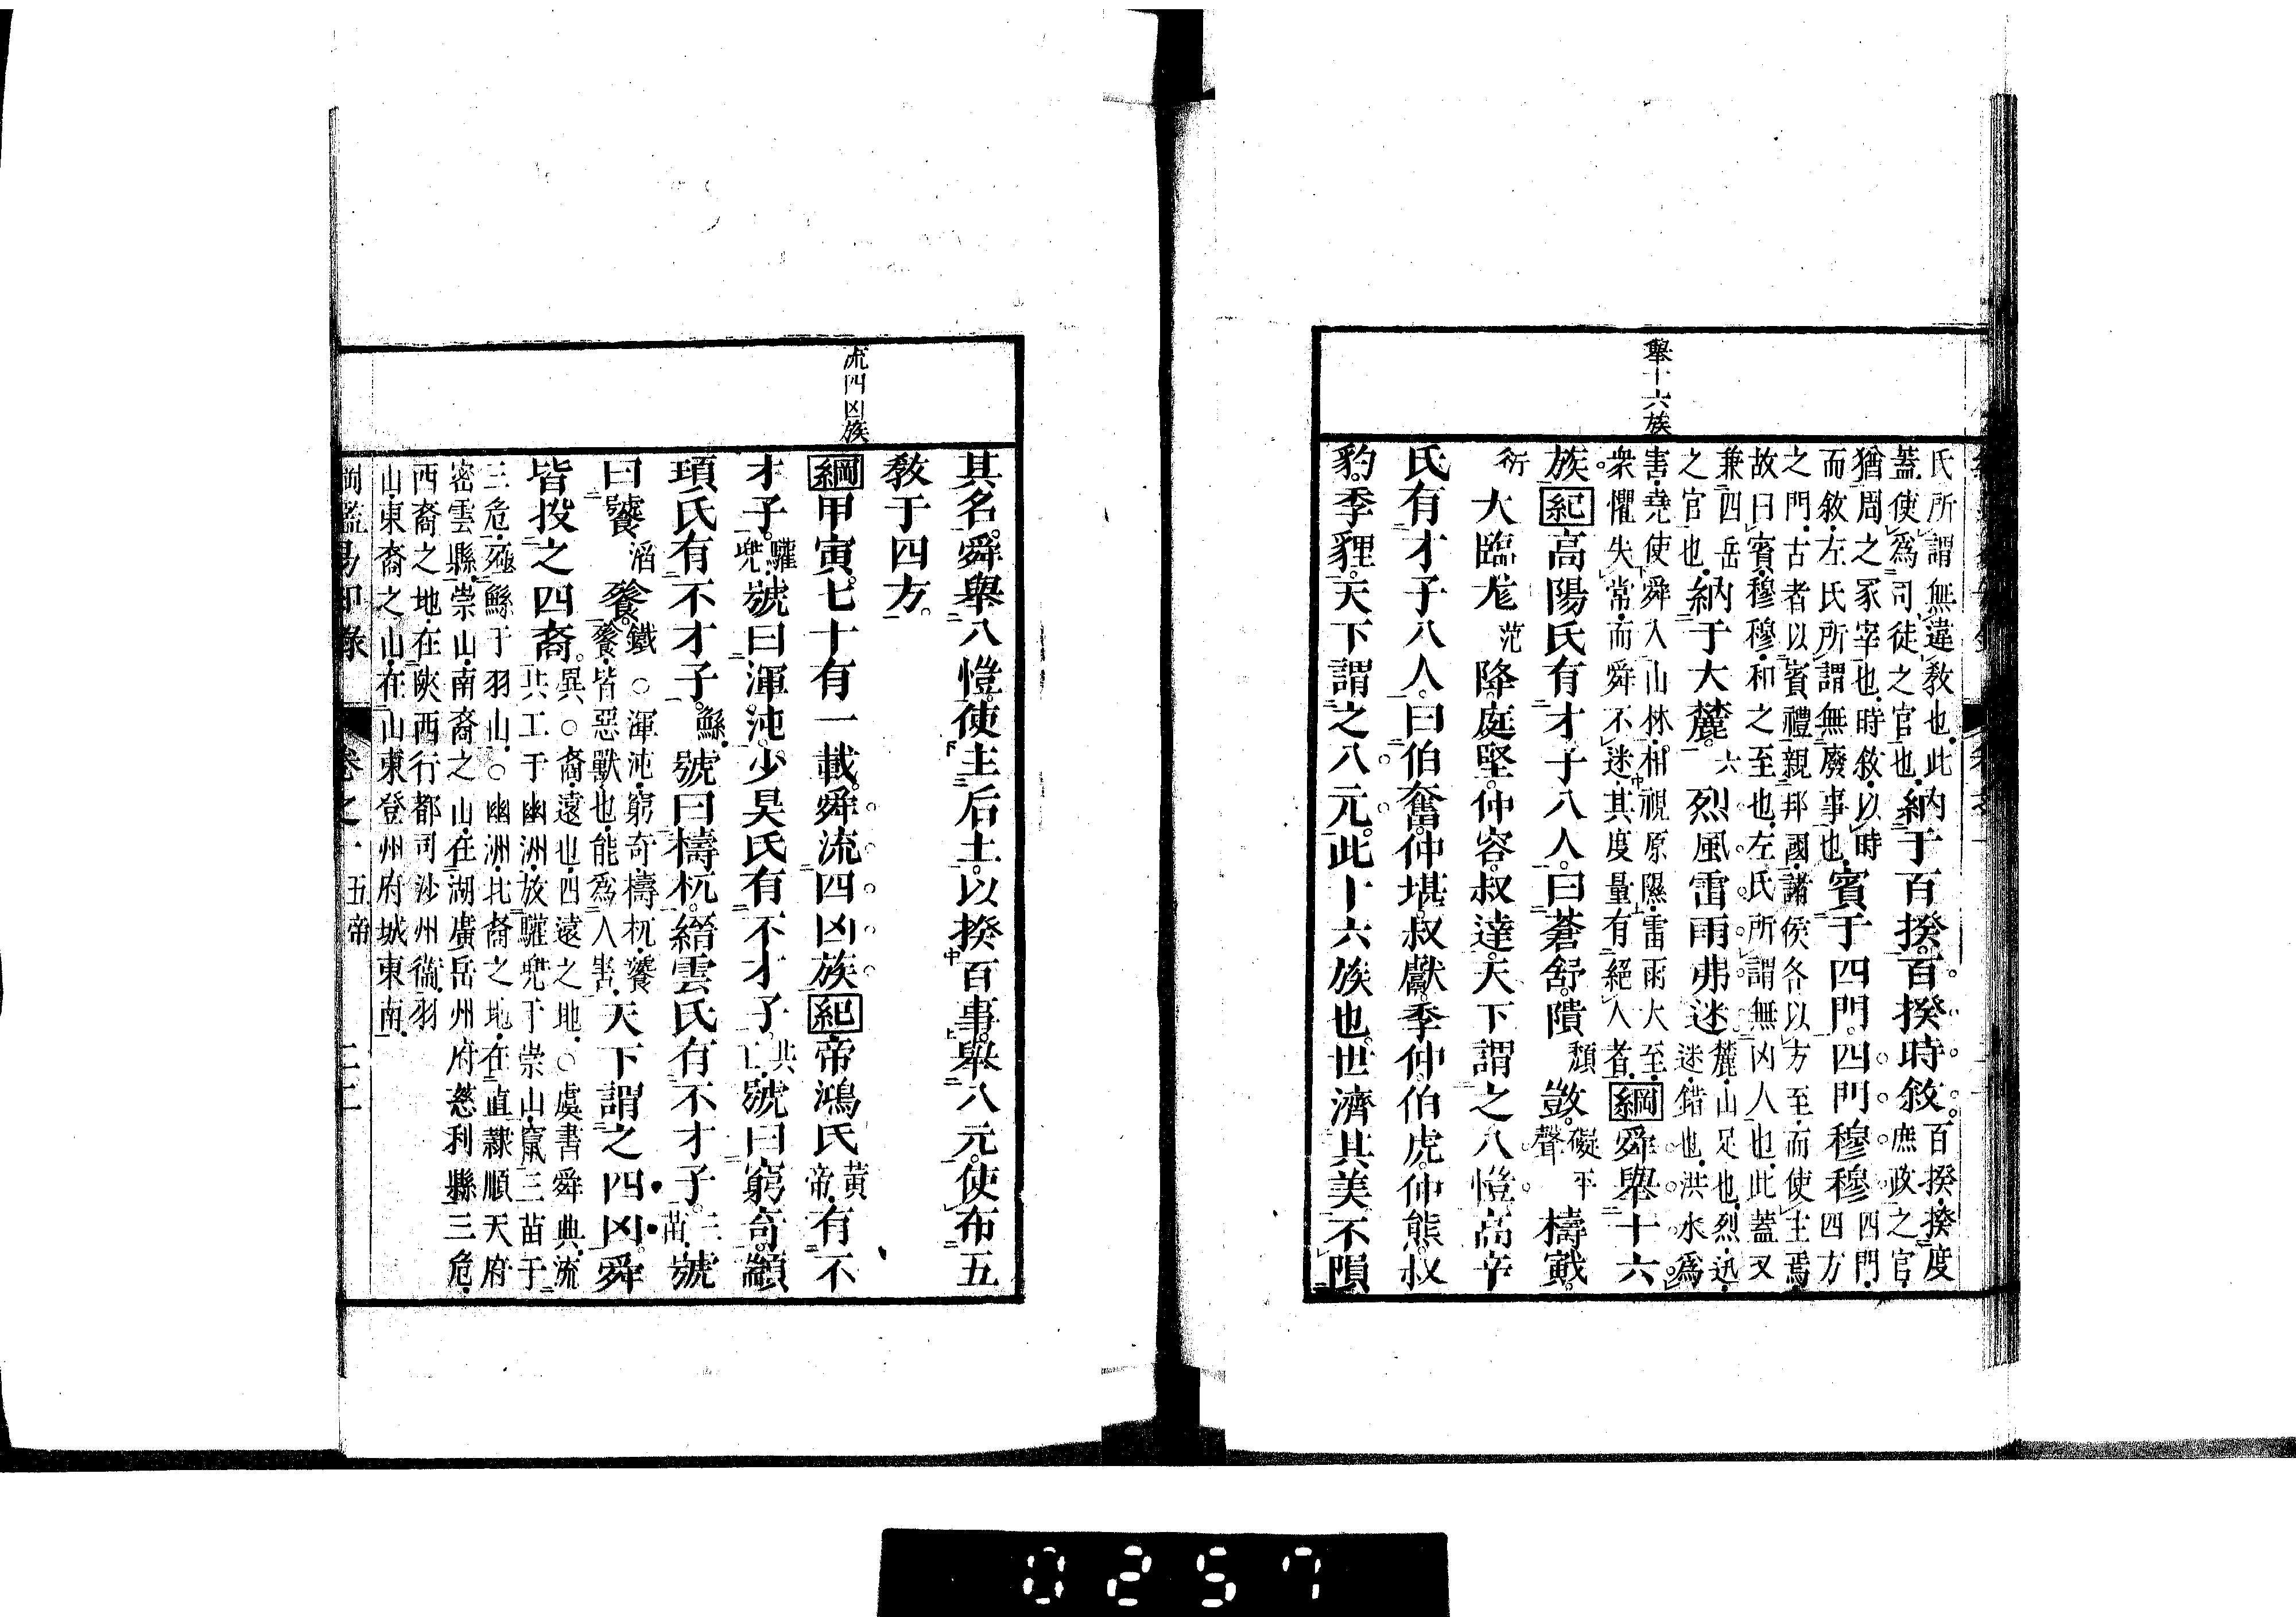 舉十六族
氏所謂無違教也此內
蓋使爲司徒之官也納于百揆百揆時敘百揆揆度
庶政之官
猶周之冢宰也時敘以時
而敘左氏所謂無廢事也賓于四門四門穆穆四門
四方
之門古者以賓禮親邦國諸侯各以方至而使主焉
故曰賓穆穆和之至也左氏所謂無凶人也此蓋又
兼四岳
之官也納于大麓六烈風雷雨弗迷麓山足也烈迅
迷錯也洪水爲
害堯使舜入山林相視原隰雷雨大至
衆懼失常而舜不迷其度量有絕人者綱舜舉十六
族紀高陽氏有才子八人曰蒼舒隤頹敳礙平聲檮戭
衍大臨尨范降庭堅仲容叔達天下謂之八愷高辛
氏有才子八人曰伯奮仲堪叔獻季仲伯虎仲熊叔
豹季貍天下謂之八元此十六族也世濟其美不隕
其名舜舉八愷使主后土以揆百事舉八元使布五
教于四方
流四凶族
綱甲寅七十有一載舜流四凶族紀帝鴻氏黃帝有不
才子驩兜號曰渾沌少昊氏有不才子共工號曰窮奇顓
頊氏有不才子鯀號曰檮杌縉雲氏有不才子三苗號
曰饕滔餮鐵○渾沌窮奇檮杌饕
餮皆惡獸也能爲人害天下謂之四凶舜
皆投之四裔異○裔遠也四遠之地○虞書舜典流
共工于幽洲放驩兜于崇山竄三苗于
三危殛鯀于羽山○幽洲北裔之地在直隸順天府
密雲縣崇山南裔之山在湖廣岳州府慈利縣三危
西裔之地在陝西行都司沙州衞羽
山東裔之山在山東登州府城東南
綱鑑易知錄 卷之一 五帝
0257